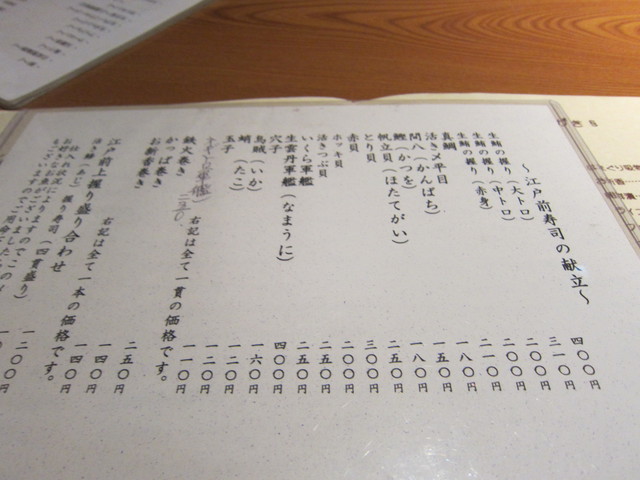 ～江戸前寿司の献立～
生鮪の握り（大トロ） 四〇〇円
生鮪の握り（中トロ） 三一〇円
生鮪の握り（赤身） 二〇〇円
真鯛 二〇〇円
活き〆平目 二一〇円
間八（かんぱち） 一八〇円
鰹（かつを） 一五〇円
帆立貝（ほたてがい） 一八〇円
とり貝 二五〇円
赤貝 三〇〇円
ホッキ貝 二〇〇円
活きつぶ貝 二五〇円
いくら軍艦 二五〇円
生雲丹軍艦（なまうに） 四〇〇円
穴子 一六〇円
烏賊（いか） 一二〇円
蛸（たこ） 一二〇円
玉子 一一〇円
軍艦 二三〇
右記は全て一貫の価格です。
鉄火巻き 二五〇円
かっぱ巻き 一四〇円
お新香巻き 一四〇円
右記は全て一本の価格です。
江戸前上握り盛り合わせ 一二〇〇円
（あじ）握り寿司（四貫盛り）
仕入れ状況により